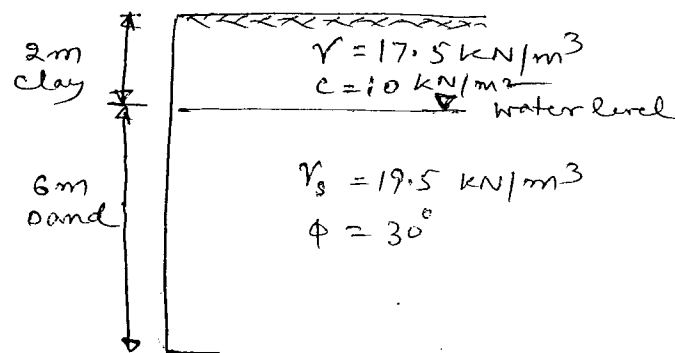 2m
clay
γ = 17.5 kN/m³
c = 10 kN/m²
water level
6m
sand
γs = 19.5 kN/m³
φ = 30°